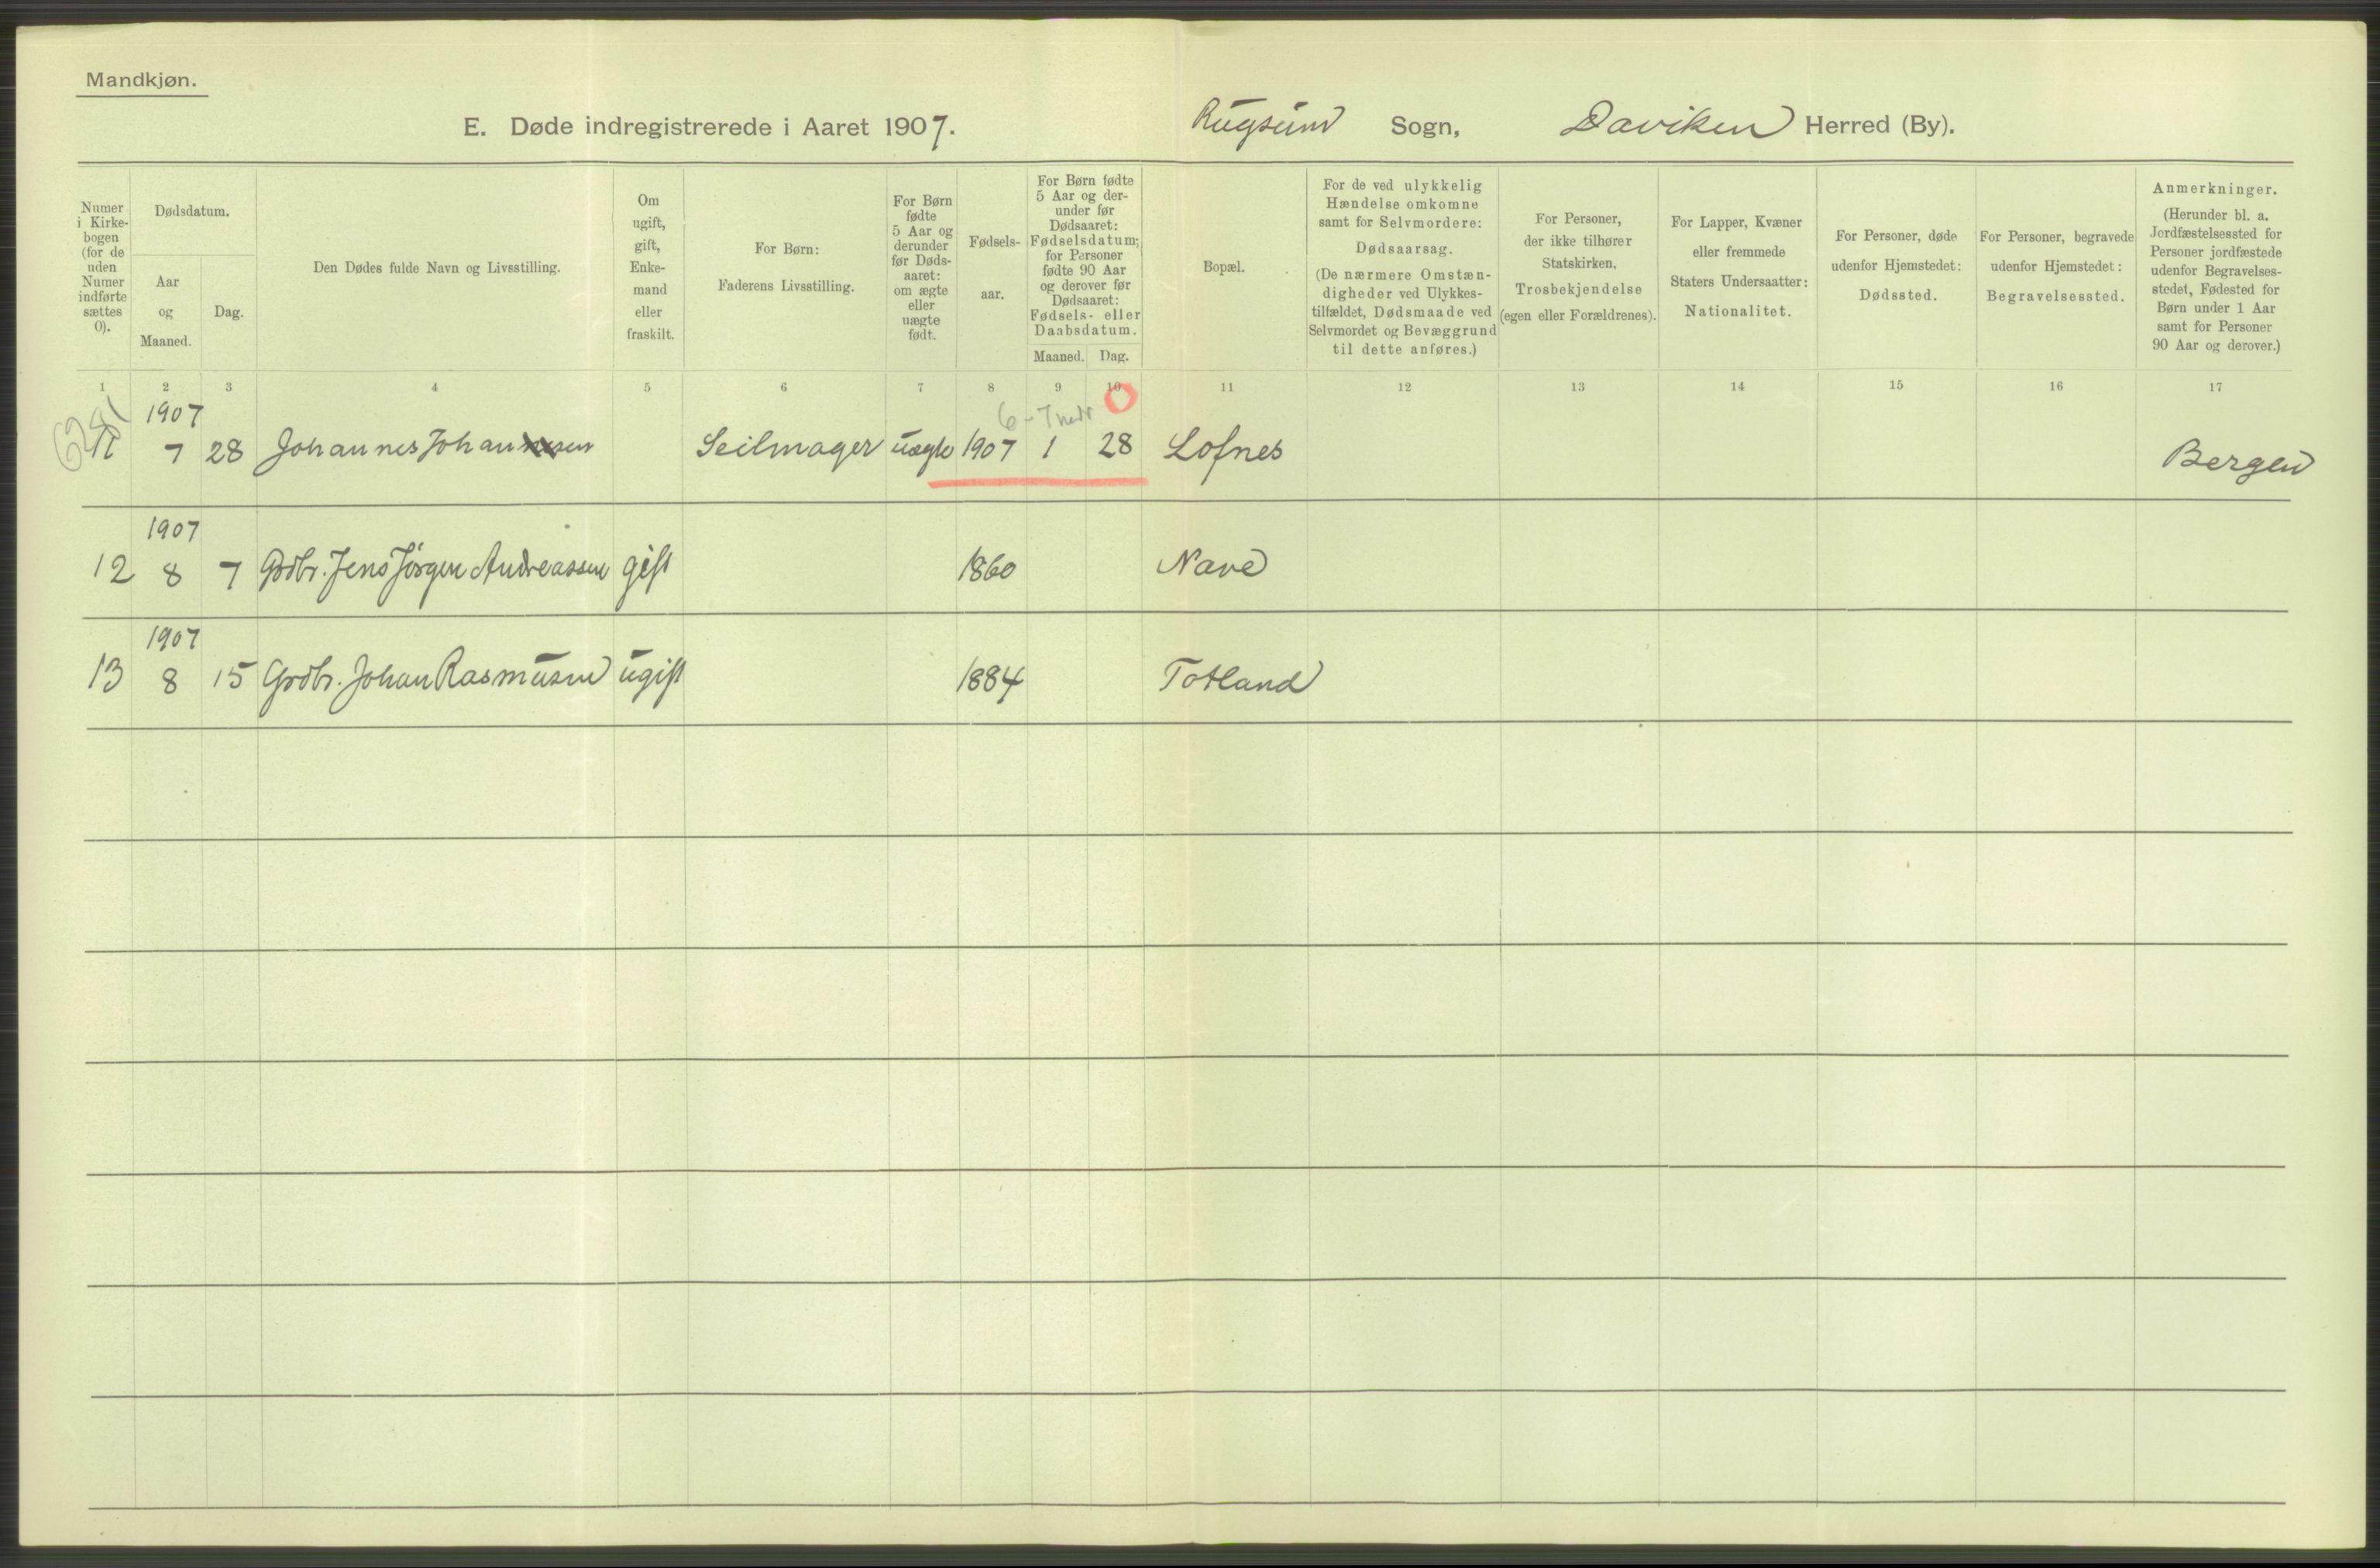 Mandkjøn.
E. Døde indregistrerede i Aaret 1907. Rugsund Sogn, Daviken Herred (By).
Numer i Kirke-bogen (for de uden Numer indførte sættes 0).
Dødsdatum.
Aar og Maaned.
Dag.
Den Dødes fulde Navn og Livsstilling.
Om ugift, gift, Enke-mand eller fraskilt.
For Børn: Faderens Livsstilling.
For Børn fødte 5 Aar og derunder før Døds-aaret: om ægte eller uægte født.
Fødsels-aar.
For Børn fødte 5 Aar og der-under før Dødsaaret: Fødselsdatum; for Personer fødte 90 Aar og derover før Dødsaaret: Fødsels- eller Daabsdatum.
Maaned. Dag.
Bopæl.
For de ved ulykkelig Hændelse omkomne samt for Selvmordere: Dødsaarsag. (De nærmere Omstæn-digheder ved Ulykkes-tilfældet, Dødsmaade ved Selvmordet og Bevæggrund til dette anføres.)
For Personer, der ikke tilhører Statskirken, Trosbekjendelse (egen eller Forældrenes).
For Lapper, Kvæner eller fremmede Staters Undersaatter: Nationalitet.
For Personer, døde udenfor Hjemstedet: Dødssted.
For Personer, begravede udenfor Hjemstedet: Begravelsessted.
Anmerkninger. (Herunder bl. a. Jordfæstelsessted for Personer jordfæstede udenfor Begravelses-stedet, Fødested for Børn under 1 Aar samt for Personer 90 Aar og derover.)
1 2 3 4 5 6 7 8 9 10 11 12 13 14 15 16 17
1907 6-7 mdr
11 7 28 Johannes Johansen Seilmager uægte 1907 1 28 Lofnes Bergen
1907
12 8 7 Grdbr. Jens Jörgen Andreassen gift 1860 Nave
1907
13 8 15 Grdbr. Johan Rasmusen ugift 1884 Totland